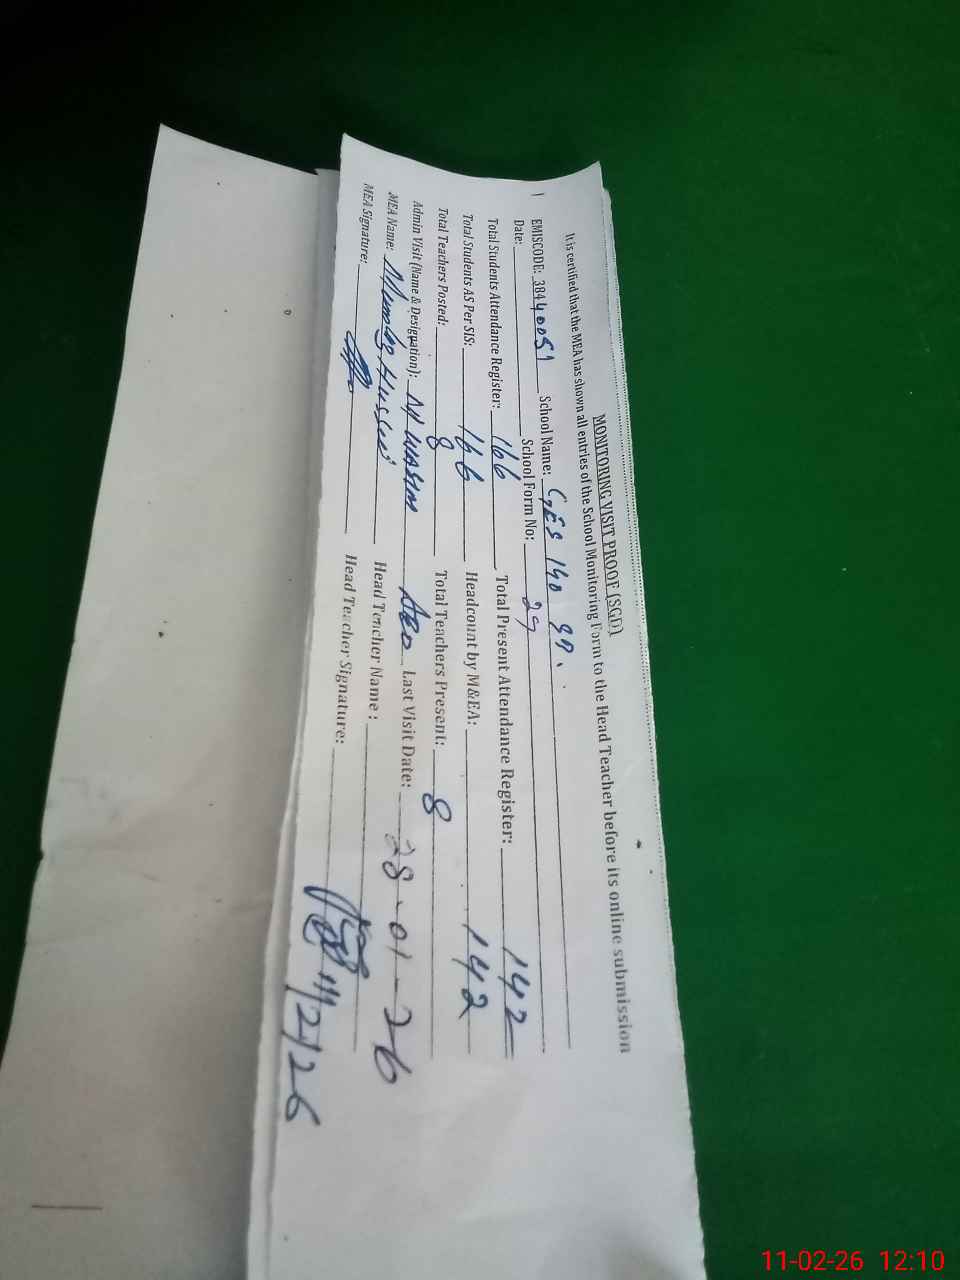 MONITORING VISIT PROOF (SGD)
It is certified that the MEA has shown all entries of the School Monitoring Form to the Head Teacher before its online submission
EMISCODE: 38440051 School Name: GES 140 SB.
Date: School Form No: 29
Total Students Attendance Register: 166 Total Present Attendance Register: 142
Total Students AS Per SIS: 166 Headcount by M&EA: 142
Total Teachers Posted: 8 Total Teachers Present: 8
Admin Visit (Name & Designation): M WASIM AEO Last Visit Date: 28-01-26
MEA Name: Hussain Head Teacher Name:
MEA Signature: Head Teacher Signature: 11/2/26
11-02-26 12:10